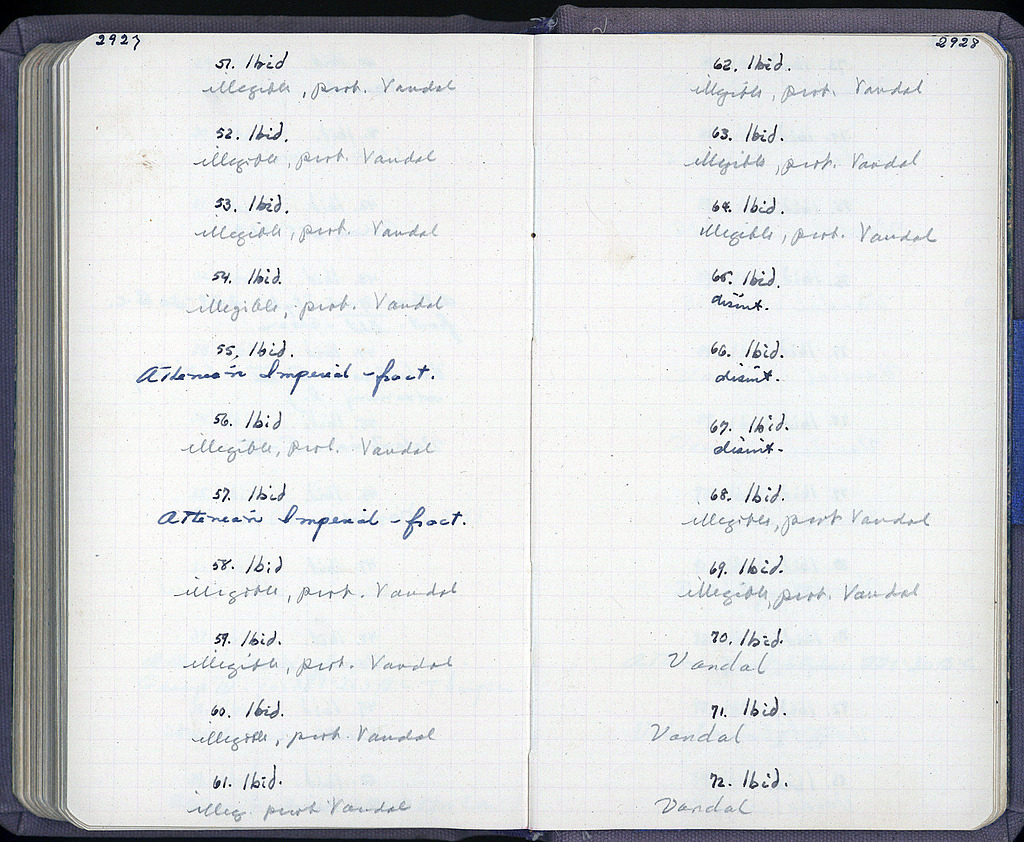 2927
51. Ibid
illegible, prob. Vandal
52. Ibid.
illegible, prob. Vandal
53. Ibid.
illegible, prob. Vandal
54. Ibid.
illegible, prob. Vandal
55. Ibid.
Athenian Imperial - fract.
56. Ibid
illegible, prob. Vandal
57. Ibid
Athenian Imperial - fract.
58. Ibid
illegible, prob. Vandal
59. Ibid.
illegible, prob. Vandal
60. Ibid.
illegible, prob. Vandal
61. Ibid.
illeg. prob Vandal
2928
62. Ibid.
illegible, prob. Vandal
63. Ibid.
illegible, prob. Vandal
64. Ibid.
illegible, prob. Vandal
65. Ibid.
disint.
66. Ibid.
disint.
67. Ibid.
disint.
68. Ibid.
illegible, prob Vandal
69. Ibid.
illegible, prob. Vandal
70. Ibid.
Vandal
71. Ibid.
Vandal
72. Ibid.
Vandal